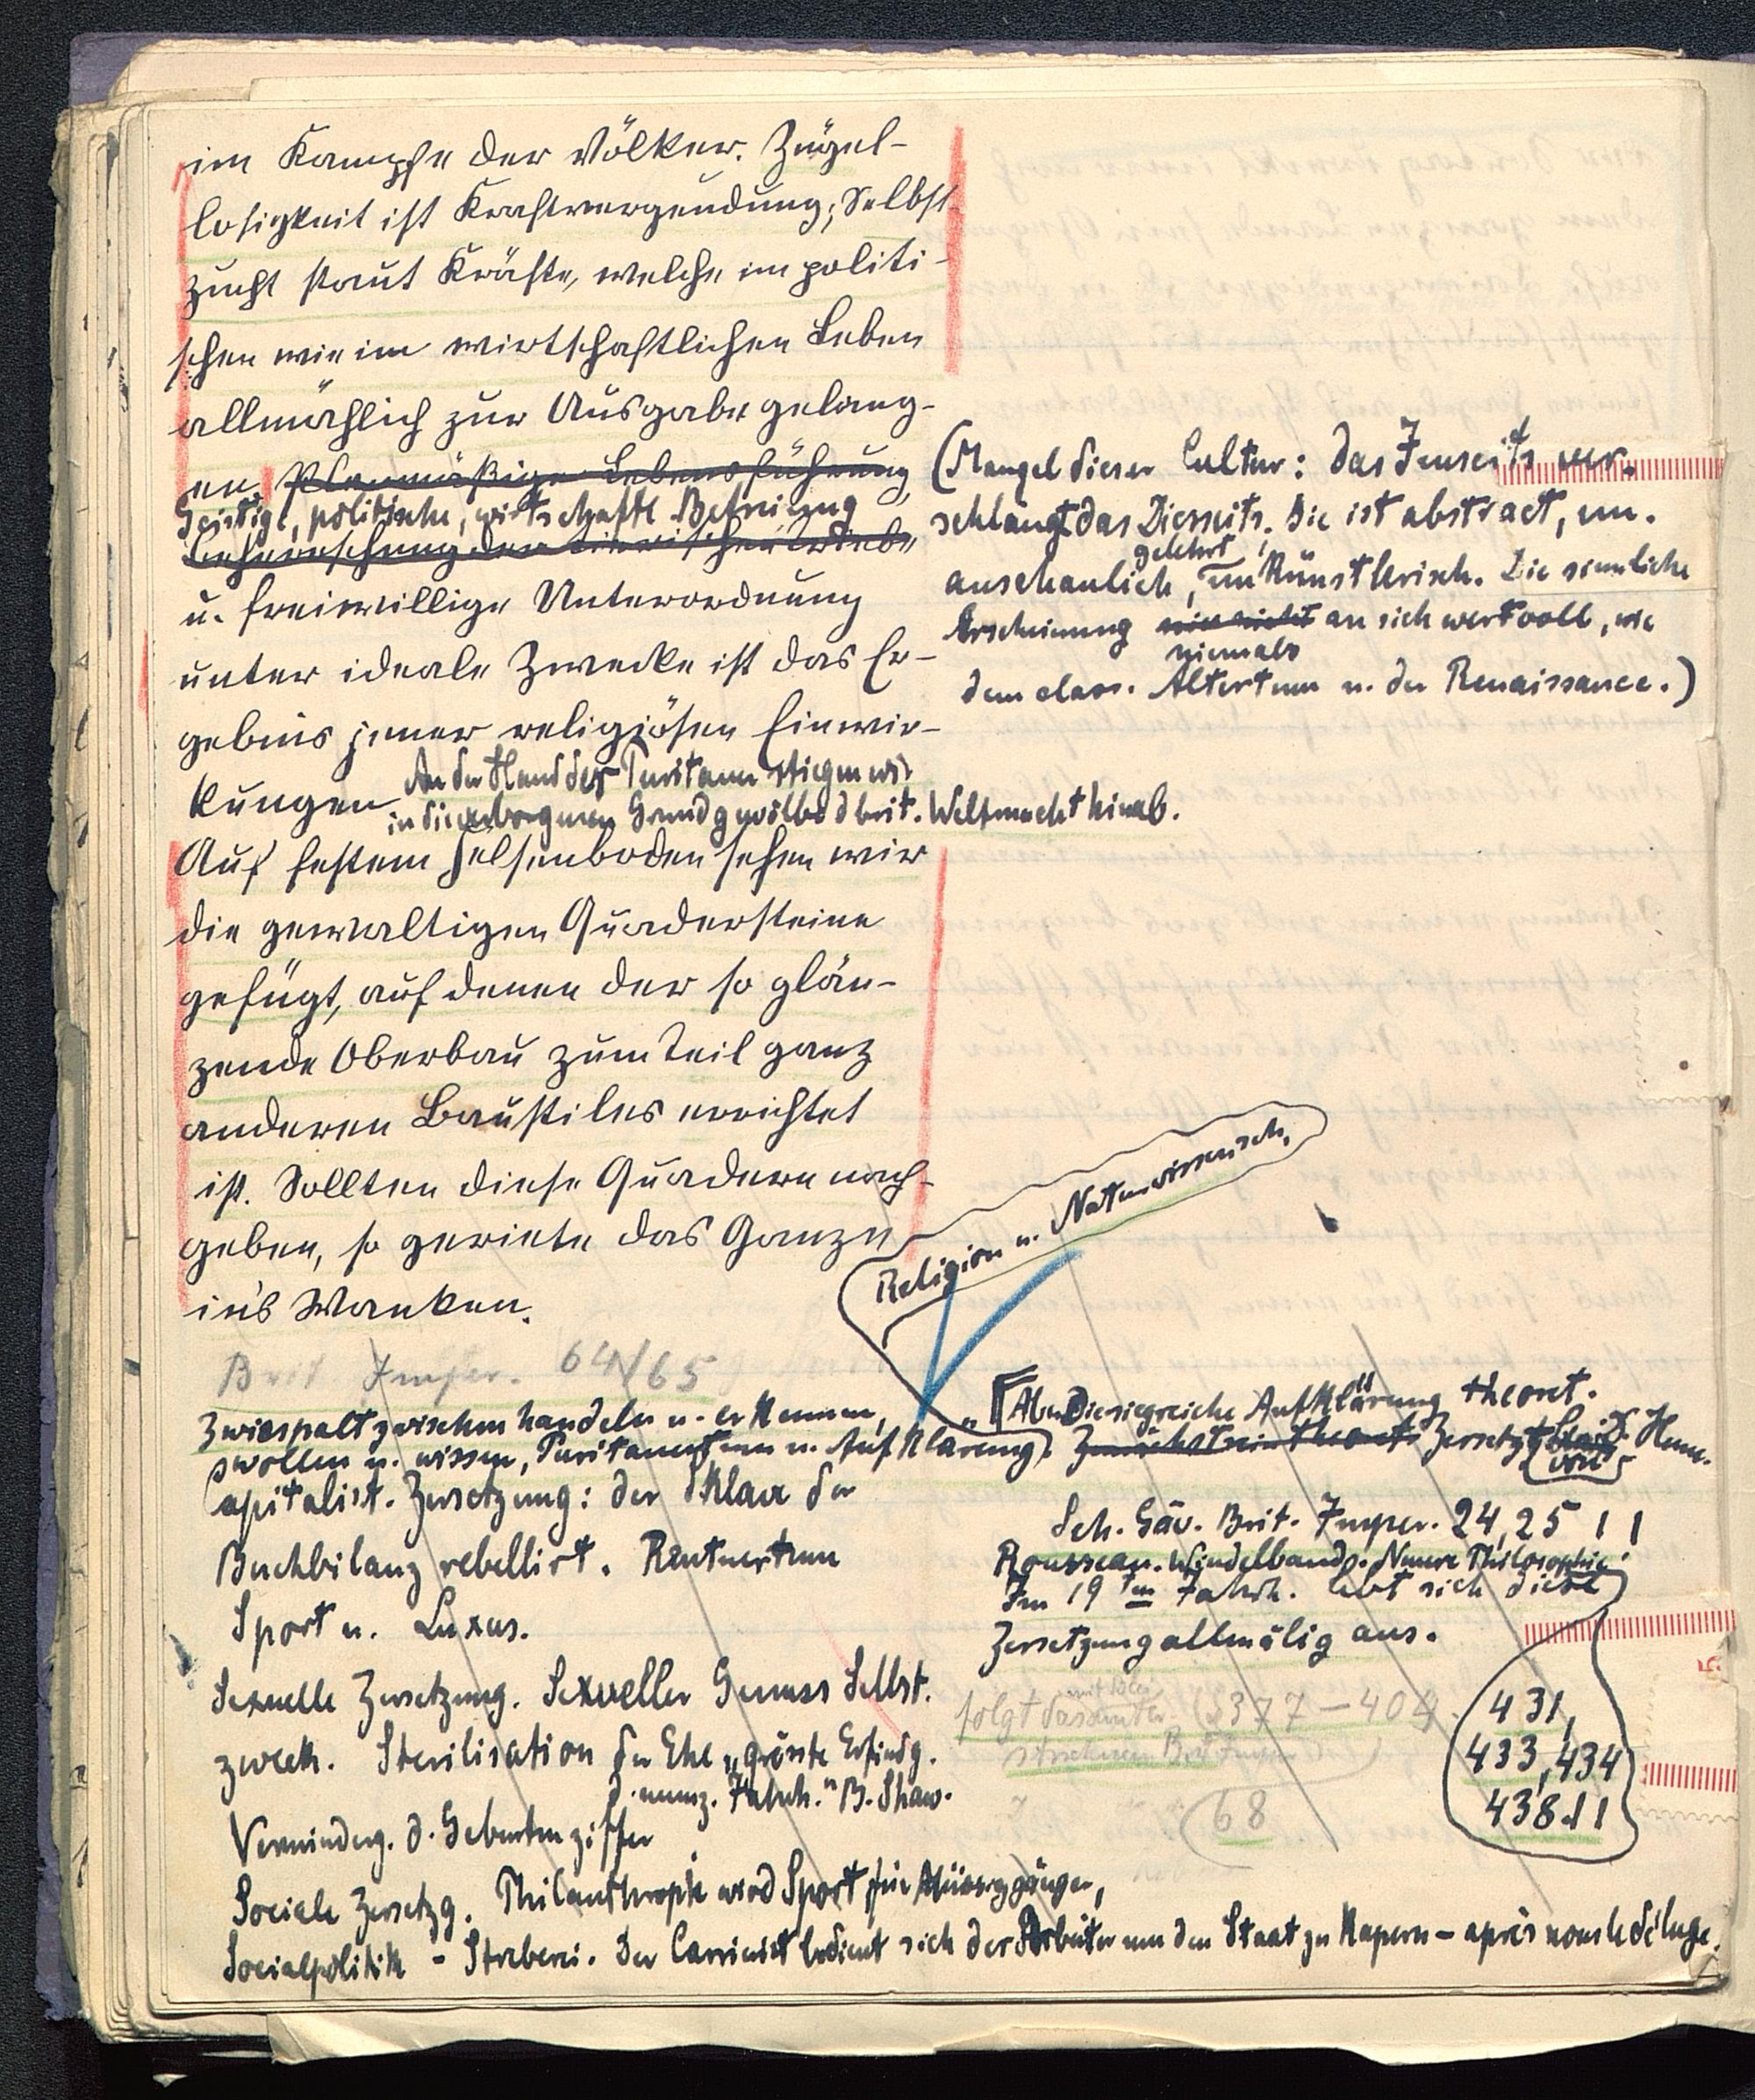 im Kampfe der Völker. Zügel-
losigkeit ist Kraftvergeudung; Selbst-
zucht staut Kräfte, welche im politi-
schen wie im wirtschaftlichen Leben
allmählich zur Ausgabe gelang-
en. Planmäßige Lebensführung,
Geistige, politische, wirtschaftl. Befreiung
Beherrschung der tierischen Triebe
u. freiwillige Unterordnung
unter ideale Zwecke ist das Er-
gebnis jener religiösen Einwir-
kungen
An der Hand der Puritaner stiegen wir
in die verborgenen Grundgewölbe d brit. Weltmacht hinab.
Auf festem Felsenboden sehen wir
die gewaltigen Quadersteine
gefügt, auf denen der so glän-
zende Oberbau zum Teil ganz
anderen Baustiles errichtet
ist. Sollten diese Quadern nach-
geben, so geriete das Ganze
in's Wanken.
(Mangel dieser Cultur: das Jenseits ver-
schlingt das Diesseits. Sie ist abstract, un-
anschaulich, gelehrt, unkünstlerisch. Die sinnliche
Erscheinung nie nicht niemals an sich wertvoll, wie
dem class. Altertum u. der Renaissance.)
Religion u. Naturwissensch.
Brit Imper. 64/65
Zwiespalt zwischen handeln u. erkennen,
wollen u. wissen, Puritanertum u. Aufklärung.
Capitalist. Zersetzung: der Sklave der
Buchbilanz rebellirt. Rentnertum
Sport u. Luxus.
Sexuelle Zersetzung. Sexueller Genuss Selbst-
zweck. Sterilisation der Ehe „grösste Erfindg.
d. neunz. Jahrh." B. Shaw.
Verminderg. d. Geburtenziffer
Sociale Zersetzg. Philanthropie wird Sport für Müssiggänger,
Socialpolitik - Streberei. Der Carrierist bedient sich der Arbeiter um den Staat zu kapern – après nous le déluge.
Aber Die siegreiche Aufklärung theoret.
Zunächst rein theoret. Zersetzt von Hume.
Sch. Gäv. Brit. Imper. 24, 25 !!
Rousseau. Windelband. Neuere Philosophie!
Im 19ten Jahrh. lebt sich diese
Zersetzung allmälig aus.
folgt das unter mit Blei (S 377 – 404)
Brit Imper
68
431,
433, 434
438 !!